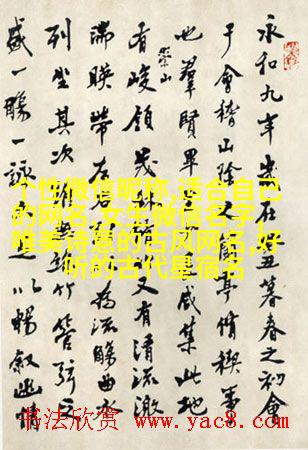 永和九年歲在丑暮春之初會
于會稽山陰蘭亭脩禊事
也羣賢畢咸集此地
有崇山峻領茂林又有清流激
湍暎帶左右為流觴曲水
列坐其次竹管弦之
盛一觴一詠以暢敘幽情
个性微信昵称,适合自己
的网名,女生微信名字,
唯美诗意的古风网名,好
听的古代星宿名
书法欣赏 www.yac8.com